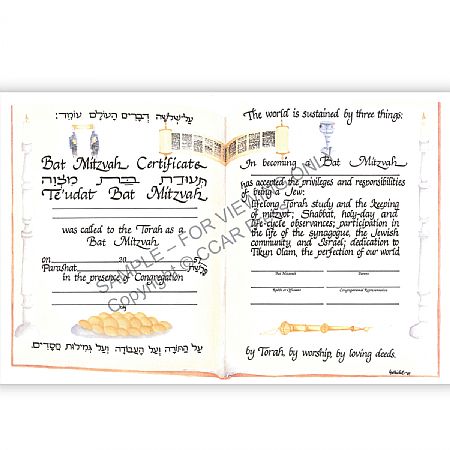 על שלשה דברים העולם עומד:
Bat Mitzvah Certificate
תעודת בת מצוה
Te'udat Bat Mitzvah
was called to the Torah as a
Bat Mitzvah
on 20
Parashat
in the presence of Congregation
by
על התורה ועל העבודה ועל גמילות חסדים.
The world is sustained by three things:
In becoming a Bat Mitzvah
has accepted the privileges and responsibilities
of being a Jew:
lifelong Torah study and the keeping
of mitzvot; Shabbat, holy-day and
life-cycle observances; participation in
the life of the synagogue, the Jewish
community, and Israel; dedication to
Tikun Olam, the perfection of our world
Bat Mitzvah Parents
Rabbi or Officiant Congregational Representative
by Torah, by worship, by loving deeds.
SAMPLE – FOR VIEWING ONLY
Copyright © CCAR PRESS